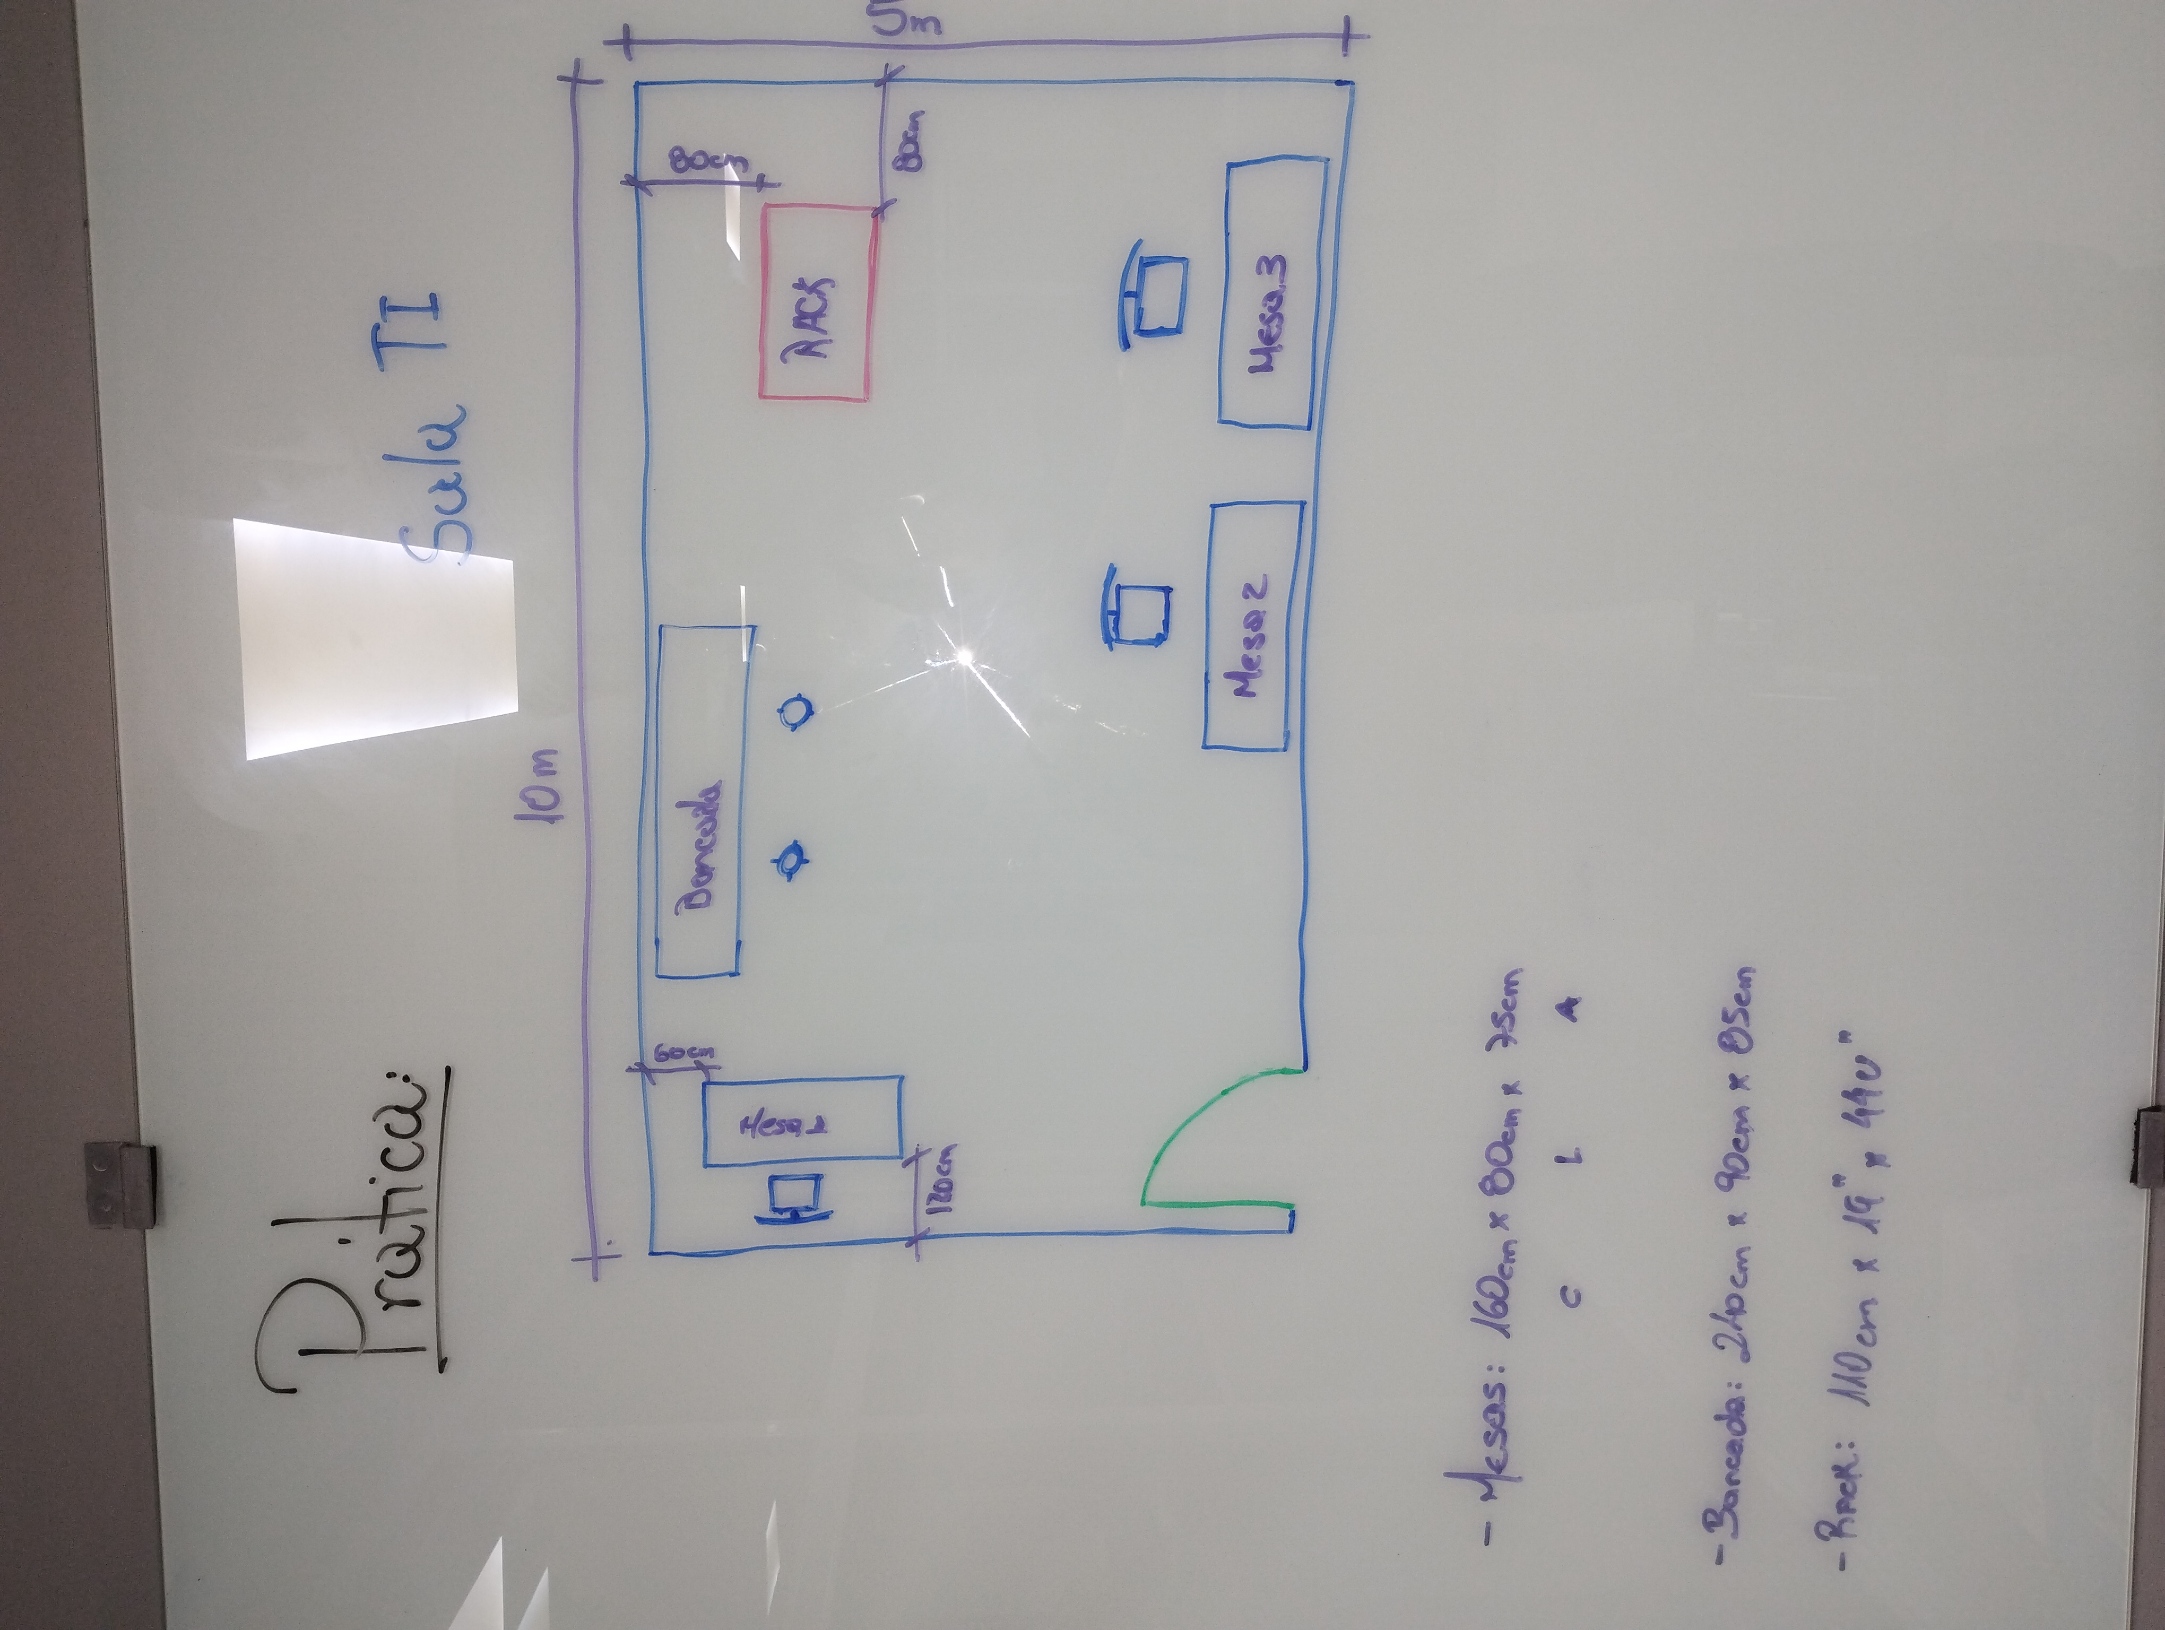 Prática:
Sala TI
10m
60cm
Bancada
80cm
Mesa 1
RACK
80cm
5m
120cm
Mesa 2
Mesa 3
- Mesas: 160cm x 80cm x 75cm
C L A
- Bancada: 240cm x 90cm x 85cm
- Rack: 110cm x 19" x 44U"